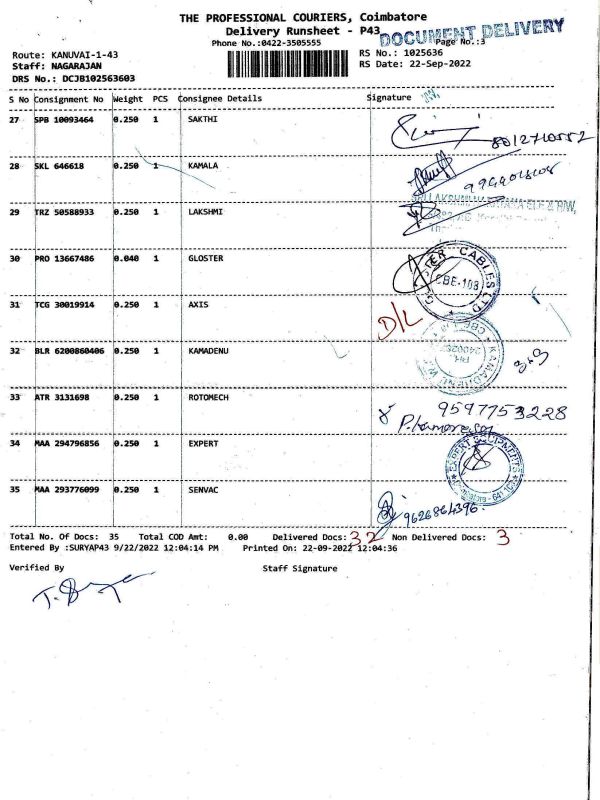 THE PROFESSIONAL COURIERS, Coimbatore
Delivery Runsheet - P43
DOCUMENT DELIVERY
Phone No.:0422-3505555
Page No.:3
Route: KANUVAI-1-43
RS No.: 1025636
Staff: NAGARAJAN
RS Date: 22-Sep-2022
DRS No.: DCJB102563603
S No Consignment No Weight PCS Consignee Details Signature
27 SPB 10093464 0.250 1 SAKTHI
8012710552
28 SKL 646618 0.250 1 KAMALA
29 TRZ 50588933 0.250 1 LAKSHMI
30 PRO 13667486 0.040 1 GLOSTER
GLOSTER CABLES LTD CBE-108
31 TCG 30019914 0.250 1 AXIS
D/L
32 BLR 6200860406 0.250 1 KAMADENU
33 ATR 3131698 0.250 1 ROTOMECH
9597753228
34 MAA 294796856 0.250 1 EXPERT
EXPERT EQUIPMENTS
35 MAA 293776099 0.250 1 SENVAC
9626864396
Total No. Of Docs: 35 Total COD Amt: 0.00 Delivered Docs: 32 Non Delivered Docs: 3
Entered By :SURYAP43 9/22/2022 12:04:14 PM Printed On: 22-09-2022 12:04:36
Verified By Staff Signature